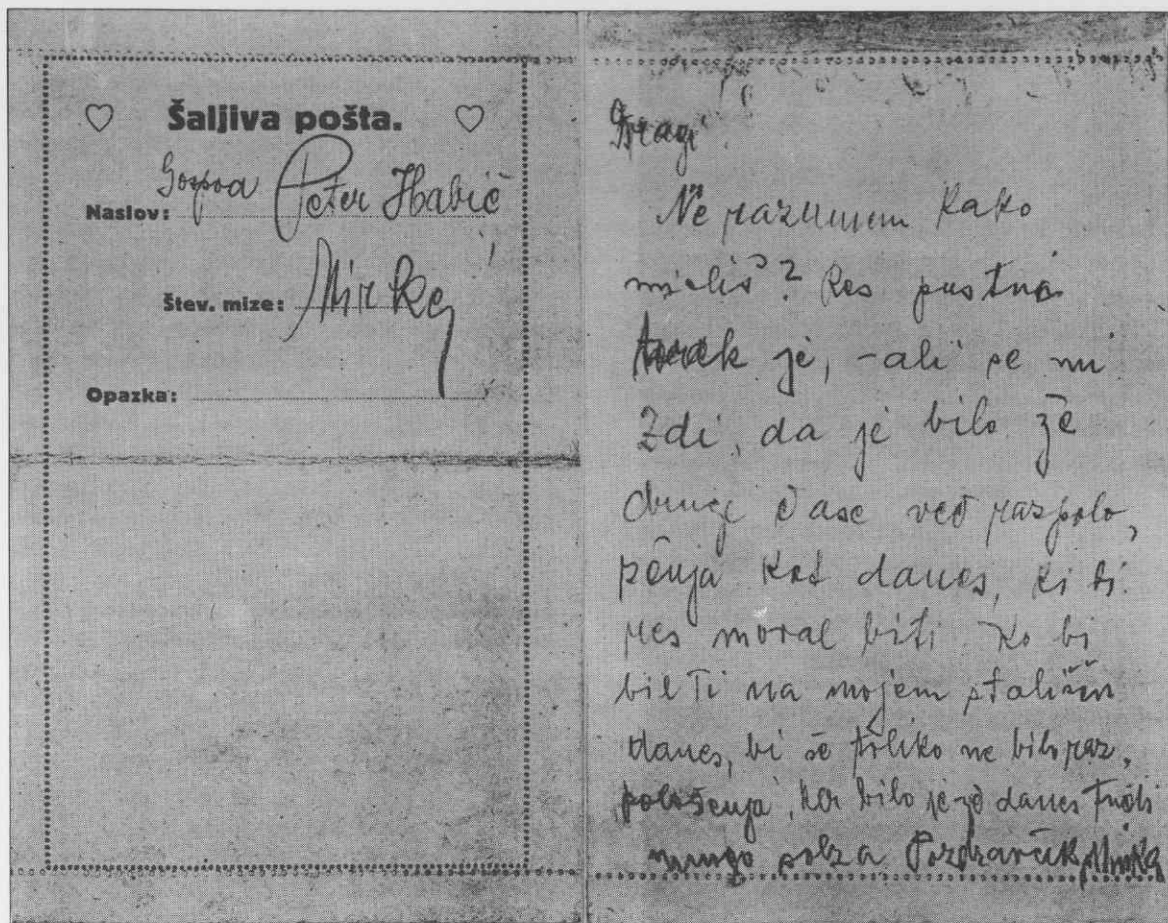 Šaljiva pošta.
Gospod Peter Habič
Naslov:
Štev. mize: Mirke
Opazka:
Dragi!
Ne razumem kako
misliš? Res pustni
torek je, - ali se mi
zdi, da je bilo že
druge čase več razpolo,
ženja kot danes, ki bi
res moral biti. Ko bi
bil Ti na mojem stališču
danes, bi še toliko ne bilo raz,
položenja, ker bilo je že danes tudi
mnogo solza Pozdravček Minka